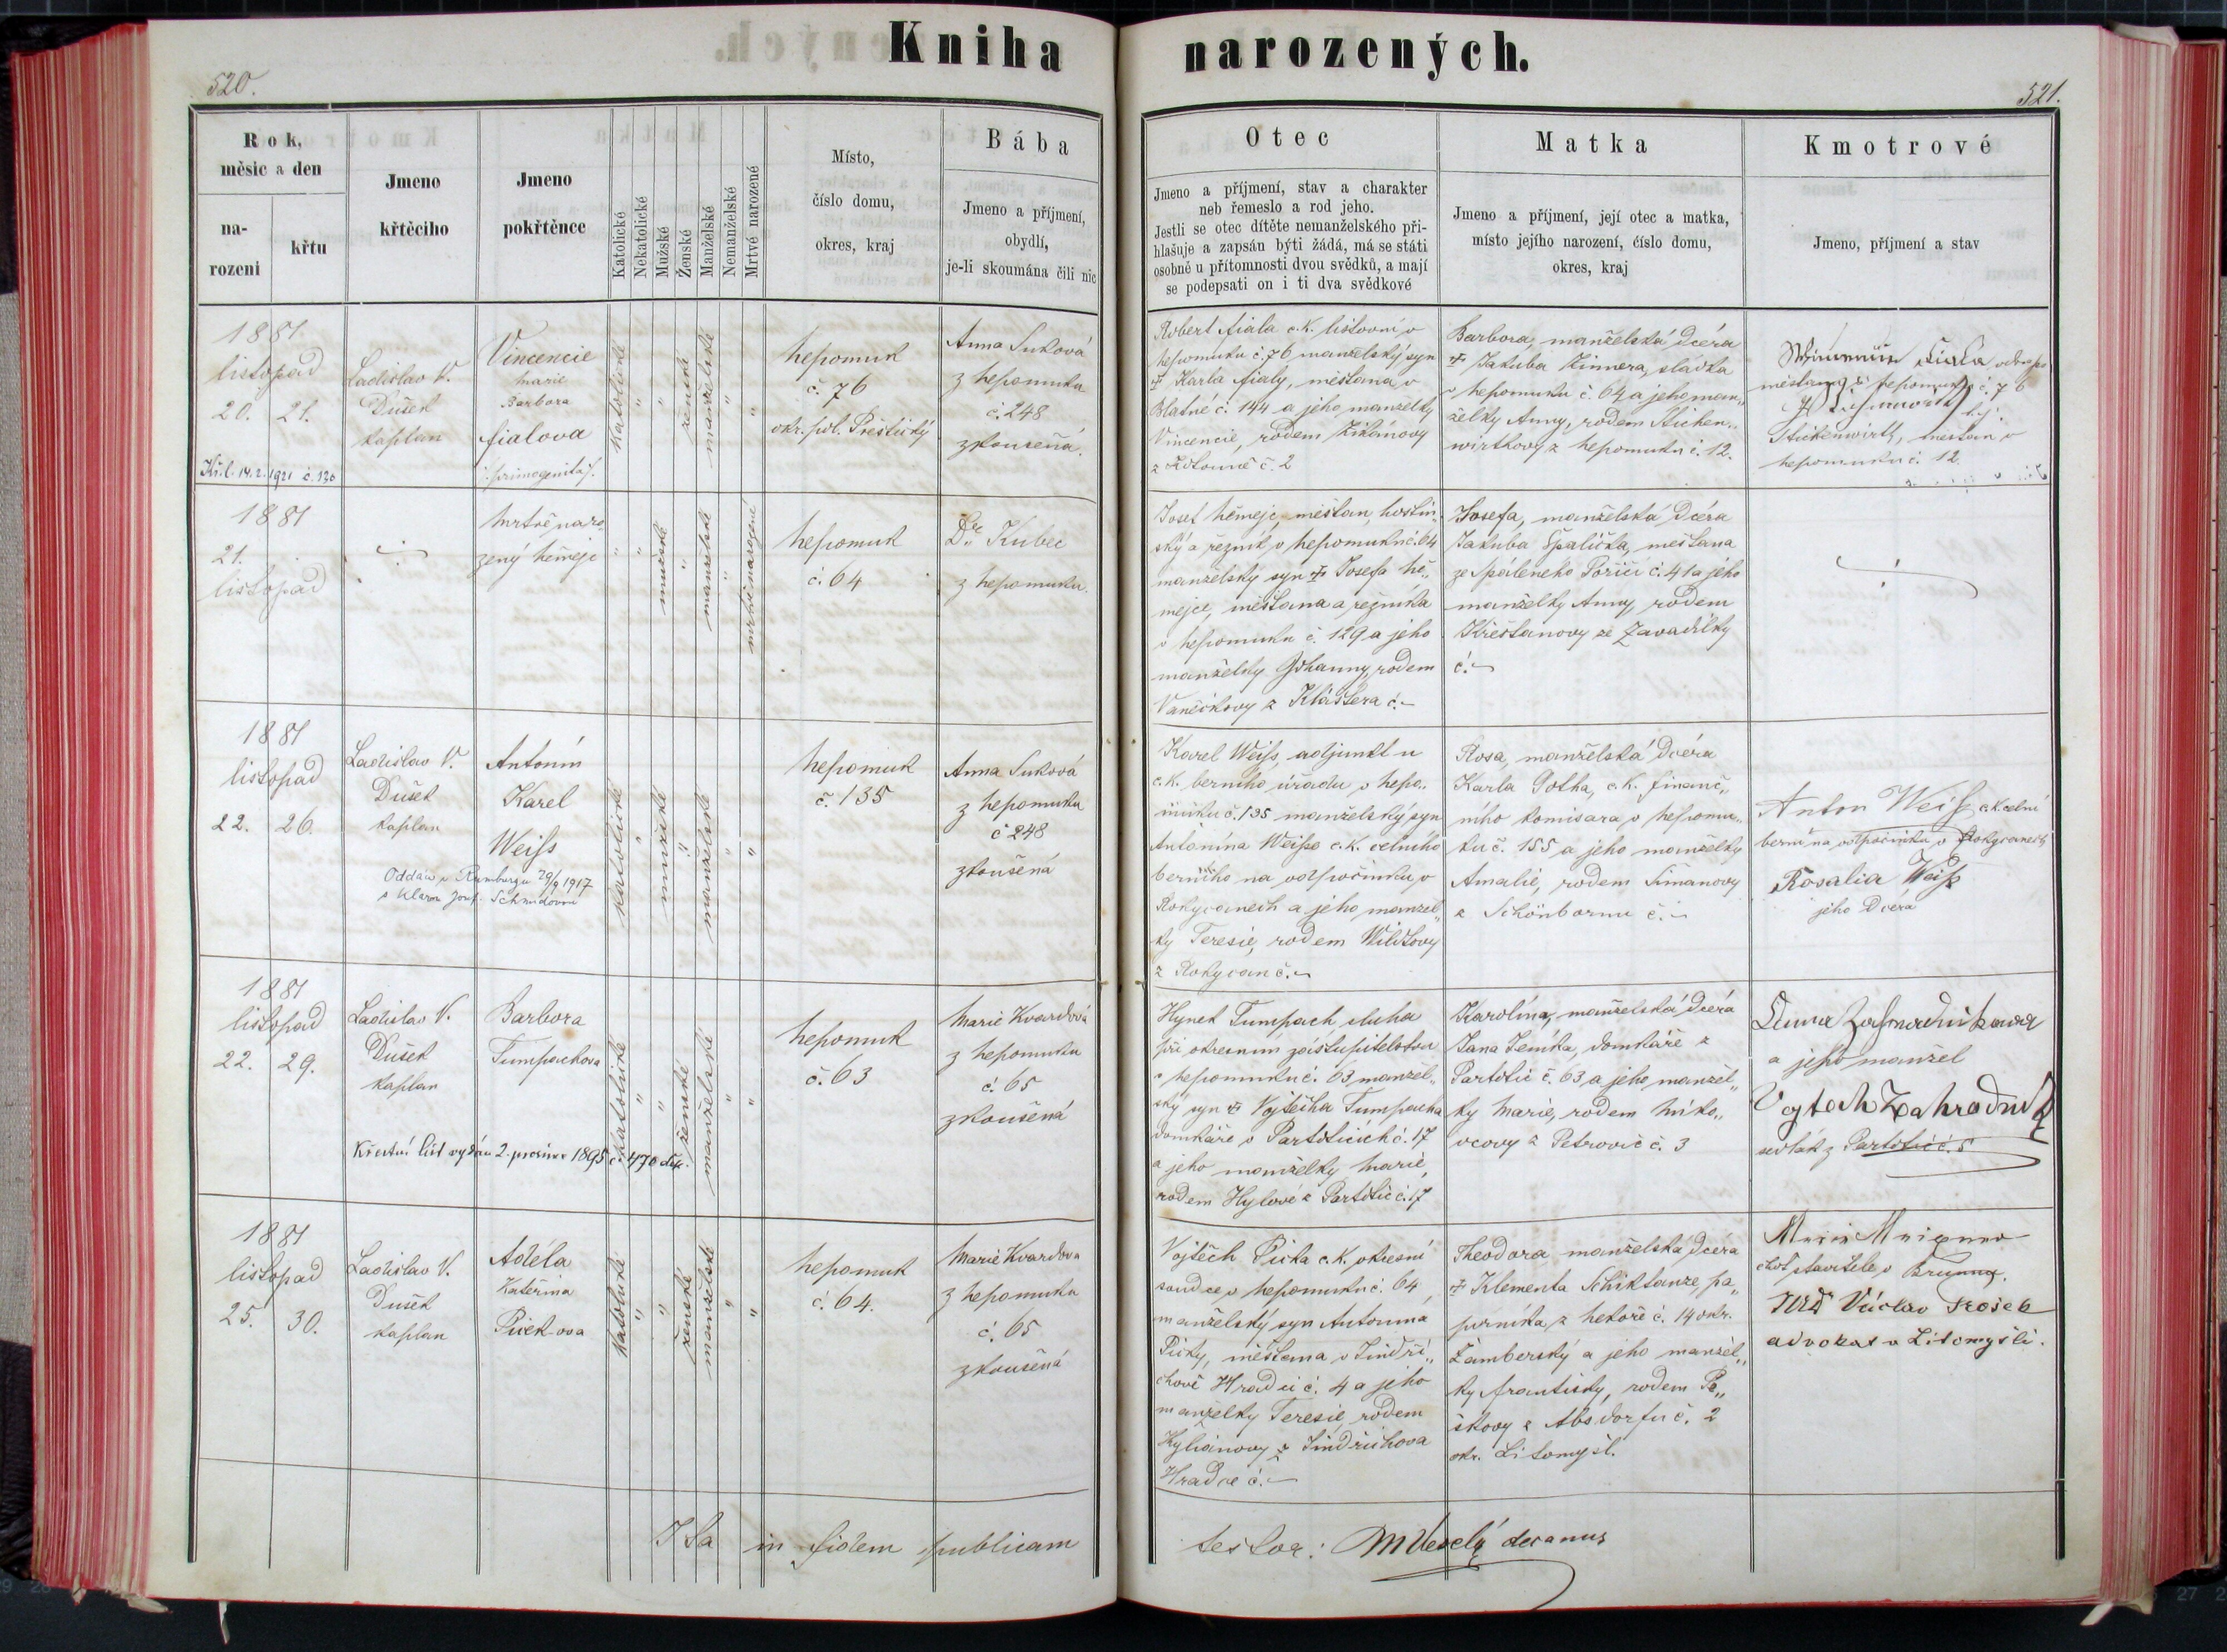 Kniha narozených.
520.
521.
Rok,
měsic a den
na-
rozeni
křtu
Jmeno
křtěciho
Jmeno
pokřtěnce
Katolické
Nekatolické
Mužské
Ženské
Manželské
Nemanželské
Mrtvé narozené
Místo,
číslo domu,
okres, kraj
Bába
Jmeno a příjmení,
obydlí,
je-li skoumána čili nic
Otec
Jmeno a příjmení, stav a charakter
neb řemeslo a rod jeho.
Jestli se otec dítěte nemanželského při-
hlašuje a zapsán býti žádá, má se státi
osobně u přítomnosti dvou svědků, a mají
se podepsati on i ti dva svědkové
Matka
Jmeno a příjmení, její otec a matka,
místo jejího narození, číslo domu,
okres, kraj
Kmotrové
Jmeno, příjmení a stav
1881
listopad
20. 21.
Kř. l. 14.2.1921 č. 130
Ladislav V.
Dušek
kaplan
Vincencie
Marie
Barbora
Fialova
/:primogenita:/
katolické
"
"
ženské
manželské
"
"
Nepomuk
č. 76
okr. pol. Přeštický
Anna Suková
z Nepomuku
č. 248
zkoušená.
Robert Fiala c.k. listovní v
Nepomuku č. 76 manželský syn
† Karla Fialy, měšťana v
Blatné č. 144 a jeho manželky
Vincencie, rodem Zikánovy
č. 2
Barbora, manželská dcéra
† Jakuba Zinnera, sládka
v Nepomuku č. 64 a jeho man„
želky Anny, rodem Stichen„
wirthovy z Nepomuku č. 12.
Fiala
měšťana z Nepomuku č. 76
Stichenwirth, měšťan v
Nepomuku č. 12.
1881
21.
listopad
Mrtvě naro
zený Němeje
"
"
mužské
"
manželské
"
mrtvě narozené
Nepomuk
č. 64
Dr. Kubec
z Nepomuku.
Josef Němeje, měšťan, hostin„
ský a řezník v Nepomuku č. 64
manželský syn † Josefa Ně„
mejce, měšťana a řezníka
v Nepomuku č. 129 a jeho
manželky Johanny, rodem
Vaněčkovy z Kláštera č. –
Josefa, manželská dcéra
Jakuba Špalička, měšťana
ze Spáleného Poříčí č. 41 a jeho
manželky Anny, rodem
Křesťanovy ze Zavadilky
č. –
1881
listopad
22. 26.
Ladislav V.
Dušek
kaplan
Antonín
Karel
Weiss
Oddán v Rumburgu 29/9 1917
s Klarou Josef. Schmidovou
katolické
"
mužské
"
manželské
"
"
Nepomuk
č. 135
Anna Suková
z Nepomuku
č 248
zkoušená
Karel Weiss, adjunkt u
c.k. berního úřadu v Nepo„
muku č. 135 manželský syn
Antonína Weisse c.k. celního
berního na odpočinku v
Rokycanech a jeho manžel„
ky Teresie, rodem Wildtovy
z Rokycan č. –
Rosa, manželská dcéra
Karla Gotha, c.k. finanč„
ního komisara v Nepomu„
ku č. 155 a jeho manželky
Amalie, rodem Šimanovy
z Schönbornu č. –
Anton Weiss c.k. celní
berní na odpočinku v Rokycanech
Rosalia Weiss
jeho dcera
1881
listopad
22. 29.
Ladislav V.
Dušek
kaplan
Barbora
Tumpachova
Křestní list vydán 2. prosince 1895 č. 470
katolické
"
"
ženské
manželské
"
"
Nepomuk
č. 63
Marie Kvardová
z Nepomuku
č. 65
zkoušená
Hynek Tumpach sluha
při okresním zastupitelstvu
v Nepomuku č. 63 manžel„
ský syn † Vojtěcha Tumpacha
domkáře v Partoticích č. 17
a jeho manželky Marie,
rodem Hylové z Partotic č. 17
Karolína, manželská dcéra
Jana domkáře z
Partotic č. 63 a jeho manžel„
ky Marie, rodem
z Petrovic č. 3
Anna Zahradnikowa
a jeho manžel
Vojtech Zahradnik
sedlák z Partotic č. 5
1881
listopad
25. 30.
Ladislav V.
Dušek
kaplan
Adéla
Kateřina
Picek-ova
katolické
"
"
ženské
manželské
"
"
Nepomuk
č. 64.
Marie Kvardova
z Nepomuku
č. 65
zkoušená
Vojtěch Picka c.k. okresní
soudce v Nepomuku č. 64,
manželský syn Antonína
Picky, měšťana v Jindři„
chově Hradci č. 4 a jeho
manželky Teresie, rodem
Kyliánovy z Jindřichova
Hradce č. –
Theodora manželská dcéra
† Klementa Schiktanze, pa„
pírníka z Nekoře č. 14 okr.
Žamberský a jeho manžel„
ky Františky, rodem Pe„
škovy z Absdorfu č. 2
okr. Litomyšl.
choť stavitele v
JUD Václav
advokat v Litomyšli.
Ita in fidem publicam
testor: M Veselý decanus